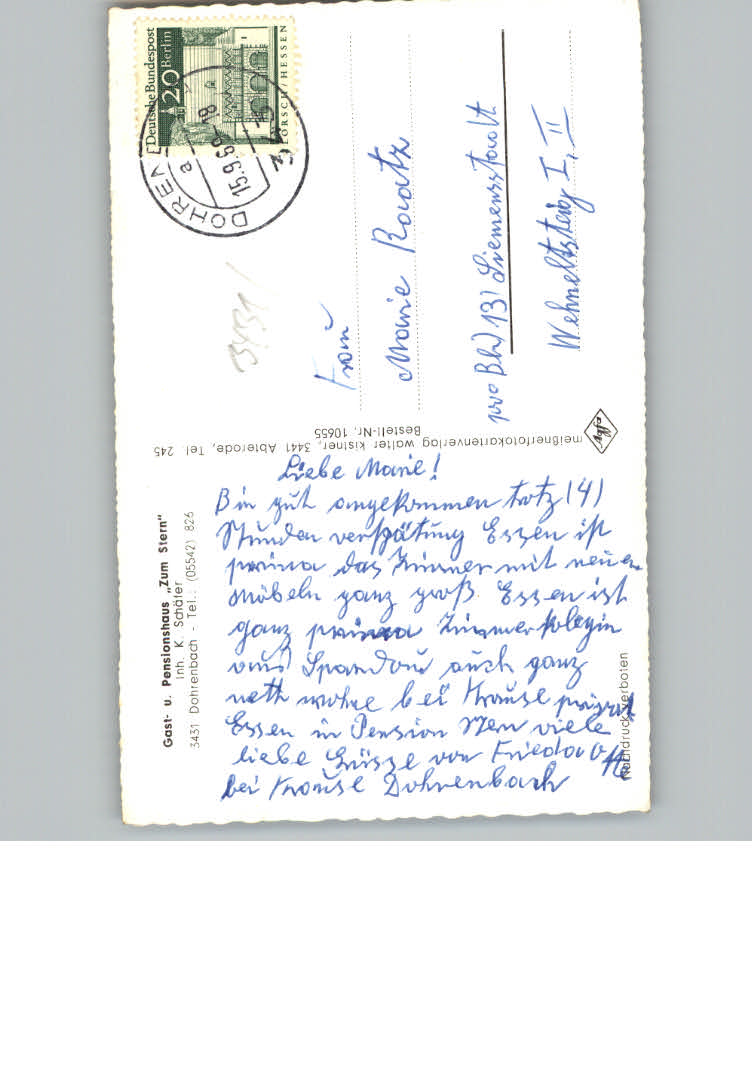 Gast- u. Pensionshaus „Zum Stern"
Inh. K. Schäfer
3431 Dohrenbach - Tel.: (05542) 826
Liebe Marie!
Bin gut angekommen trotz (4)
Stunden verspätung Essen ist
prima das Zimmer mit neuen
Möbeln ganz groß. Essen ist
ganz prima Zimmerkolegin
aus Spandau auch ganz
nett wohne bei Krause privat
Essen in Pension Stern viele
liebe Grüsse von Frieda
bei Krause Dohrenbach
Nachdruck verboten
meißnerfotokartenverlag walter kistner, 3441 Abterode, Tel. 245
Bestell-Nr. 10655
Deutsche Bundespost
Berlin
20
LORSCH/HESSEN
DOHREN
a
15.9.69-18
3431
Frau
Marie Raatz
Bln) 13) Siemensstadt
Wehneltsteig I, II